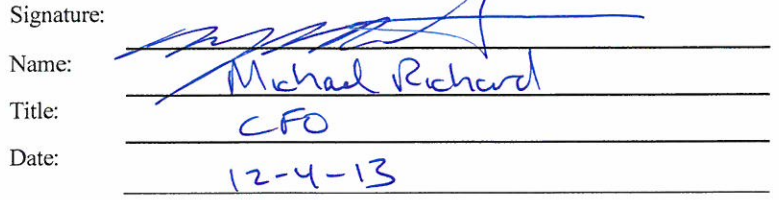 Signature:
Name: Michael Richard
Title: CFO
Date: 12-4-13